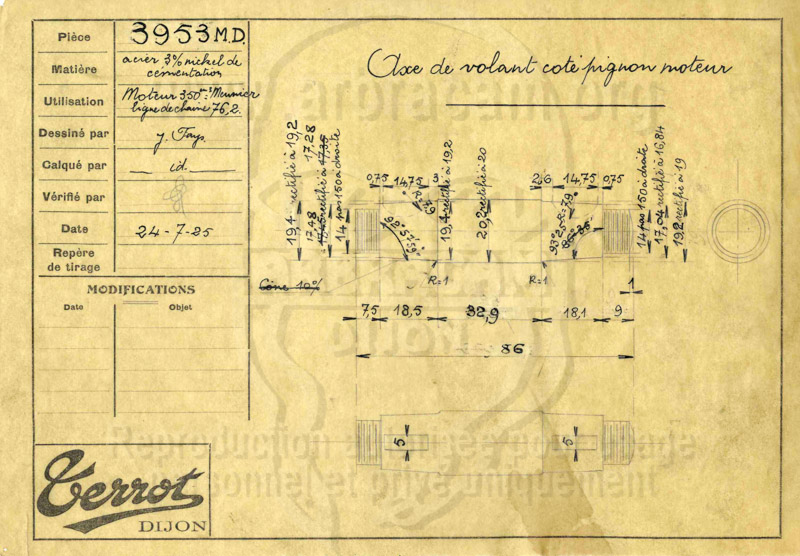 Pièce
3953 M.D.
Matière
acier 3% nickel de
cémentation
Utilisation
Moteur 350cc Meunier
ligne de chaine 76,2.
Dessiné par
Calqué par
id.
Vérifié par
Date
24-7-25
Repère
de tirage
MODIFICATIONS
Date
Objet
Terrot
DIJON
Axe de volant coté pignon moteur
19,4 rectifié à 19,2
17,48 rectifié à 17,28
14 pas 150 à droite
0,75
14,75
3
19,4 rectifié à 19,2
20,2 rectifié à 20
2,6
14,75
0,75
14 pas 150 à droite
17,04 rectifié à 16,84
19,2 rectifié à 19
Cône 10%
R=1
R=1
1
7,5
18,5
32,9
18,1
9
86
5
5
Reproduction autorisée pour usage
personnel et privé uniquement